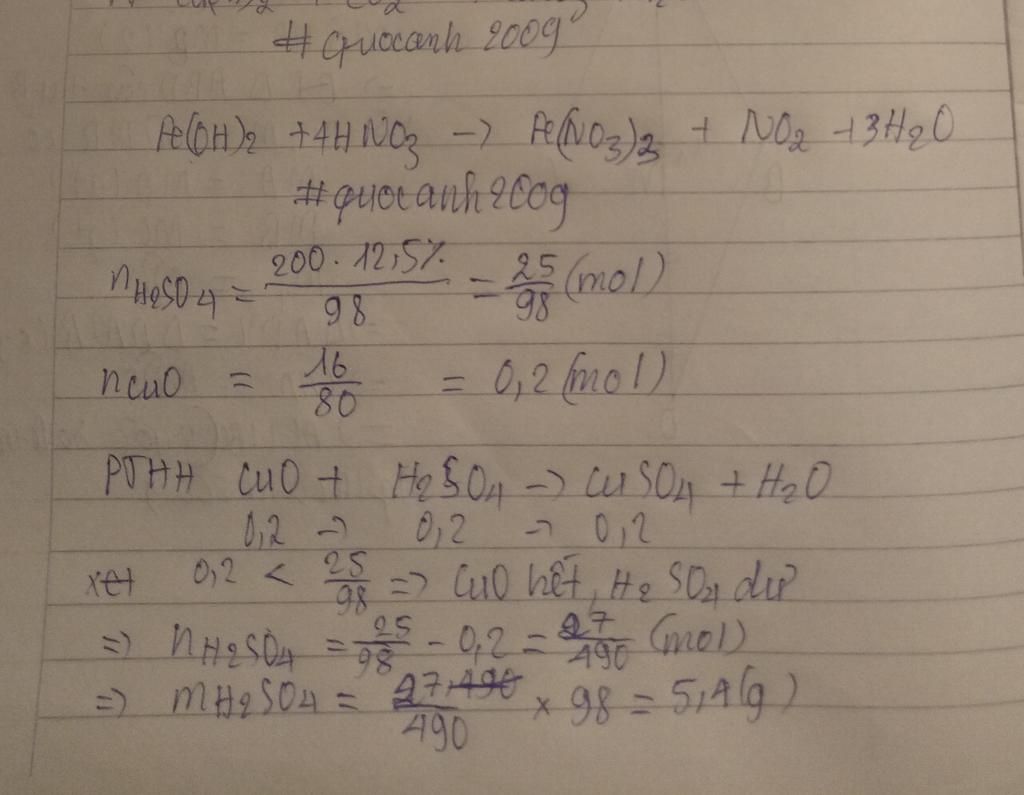 #quocanh 200g
Fe(OH)2 + 4HNO3 -> Fe(NO3)3 + NO2 + 3H2O
#quocanh200g
nH2SO4 = 200 . 12,5% / 98 = 25/98 (mol)
nCuO = 16/80 = 0,2 (mol)
PTHH CuO + H2SO4 -> CuSO4 + H2O
0,2 -> 0,2 -> 0,2
xét 0,2 < 25/98 => CuO hết, H2SO4 dư
=> nH2SO4 = 25/98 - 0,2 = 27/490 (mol)
=> mH2SO4 = 27/490 × 98 = 5,4(g)